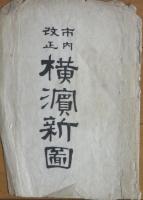 市内
改正
横濱新圖